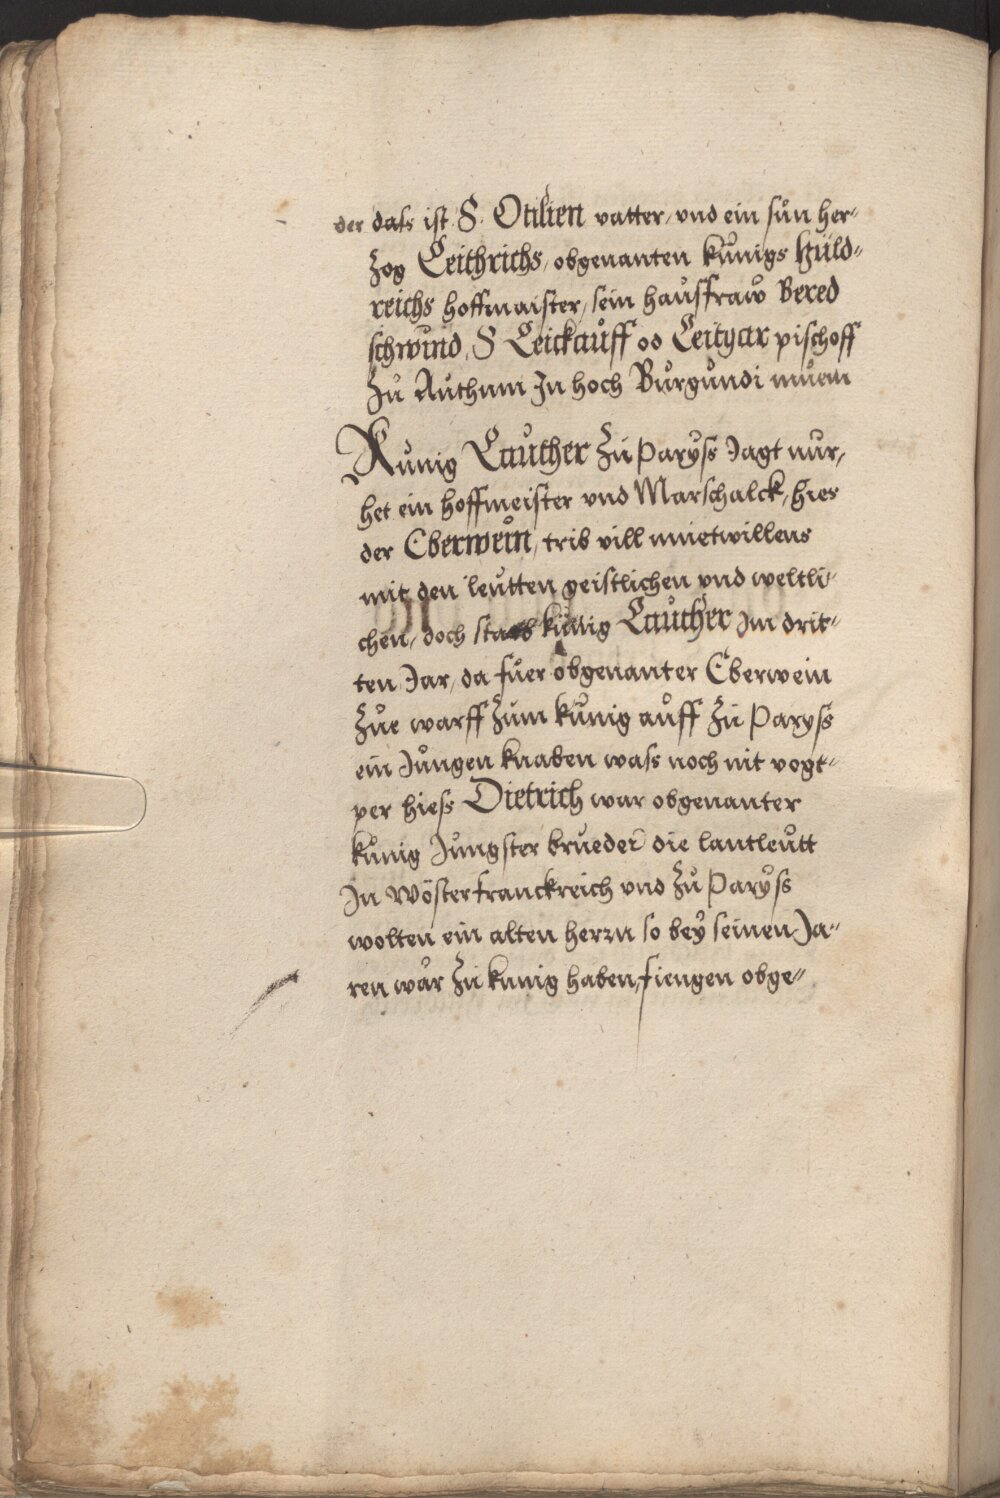 der dass ist S. Otilien vatter, vnd ein sůn her-
zog Leithrichs, obgenanten kůnigs Hůld-
reichs hoffmaister, sein hausfraw Bered
schwind, S Leickauff od Leitgar pischoff
zů Authum In hoch Burgundi muem
Kunig Lauther zů Paryss Jagt nur,
het ein hoffmeister vnd Marschalck, hies
der Eberwein, trib vill muetwillens
mit den leutten geistlichen vnd weltli-
chen, doch starb kůnig Lauther Im drit-
ten Jar, da fůer obgenanter Eberwein
Zůe warff zům kůnig auff zů Paryss
ein Jůngen knaben wass noch nit vogt-
per hiess Dietrich war obgenanter
kůnig Jůngster brueder die lantleůtt
In Wösterfranckreich vnd zů Paryss
wolten ein alten herrn so beÿ seinen Ja-
ren wår zů kunig haben, fiengen obge-